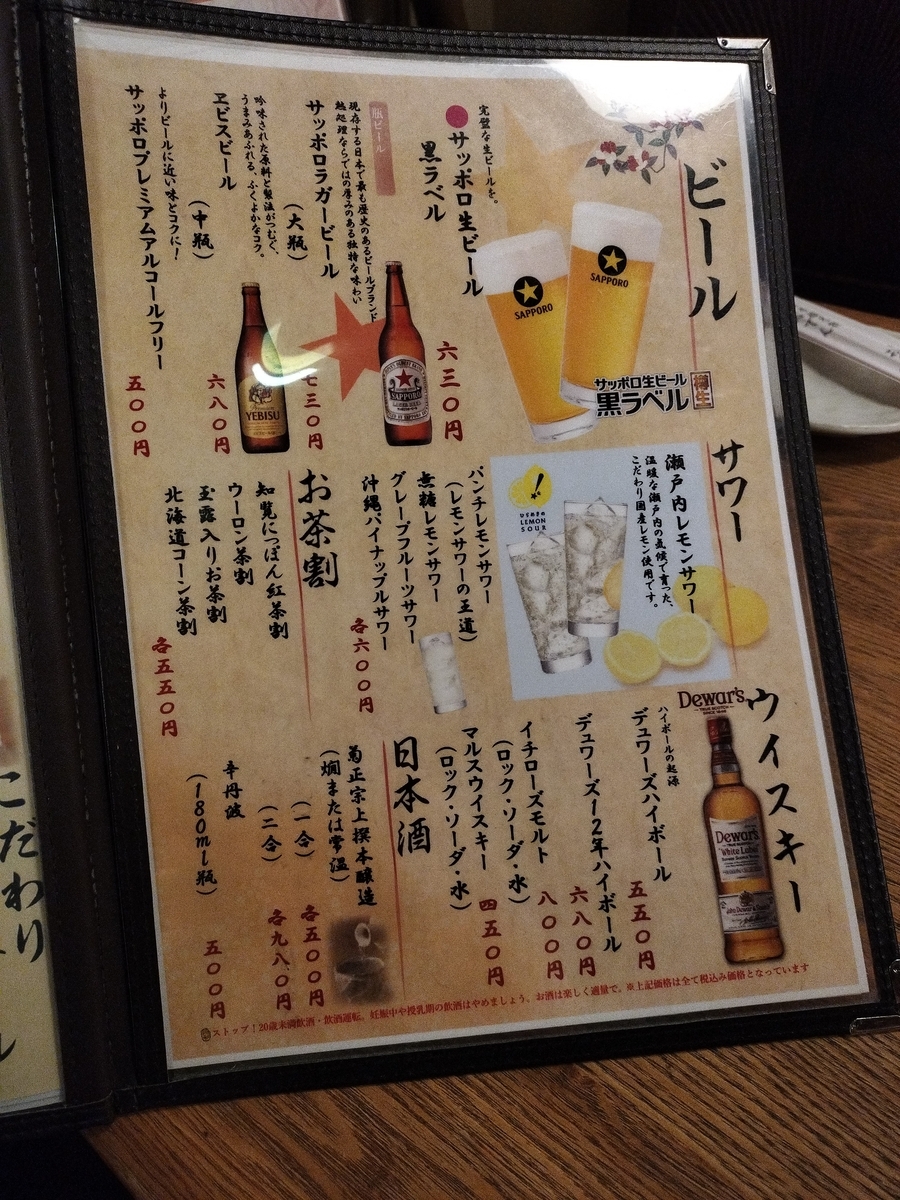 ビール
完璧な生ビールを。
サッポロ生ビール
黒ラベル
六三〇円
SAPPORO
SAPPORO
サッポロ生ビール
黒ラベル
樽生
瓶ビール
現存する日本で最も歴史のあるビールブランド
熱処理ならではの厚みのある独特な味わい
サッポロラガービール
(大瓶)
七三〇円
SAPPORO
吟味された原料と製法がつむぐ、
うまみあふれる、ふくよかなコク。
ヱビスビール
(中瓶)
六八〇円
YEBISU
よりビールに近い味とコクに!
サッポロプレミアムアルコールフリー
五〇〇円
サワー
瀬戸内レモンサワー
温暖な瀬戸内の気候で育った、
こだわり国産レモン使用です。
ひらめきの
LEMON
SOUR
パンチレモンサワー
(レモンサワーの王道)
無糖レモンサワー
グレープフルーツサワー
沖縄パイナップルサワー
各六〇〇円
お茶割
知覧にっぽん紅茶割
ウーロン茶割
玉露入りお茶割
北海道コーン茶割
各五五〇円
ウイスキー
Dewar's
Dewar's
White Label
ハイボールの起源
デュワーズハイボール
五五〇円
デュワーズ12年ハイボール
六八〇円
イチローズモルト
(ロック・ソーダ・水)
八〇〇円
マルスウイスキー
(ロック・ソーダ・水)
四五〇円
日本酒
菊正宗上撰本醸造
(燗または常温)
(一合)
各五〇〇円
(二合)
各九八〇円
辛丹波
(180ml瓶)
五〇〇円
ストップ!20歳未満飲酒・飲酒運転。妊娠中や授乳期の飲酒はやめましょう。お酒は楽しく適量で。※上記価格は全て税込み価格となっています
こだわり